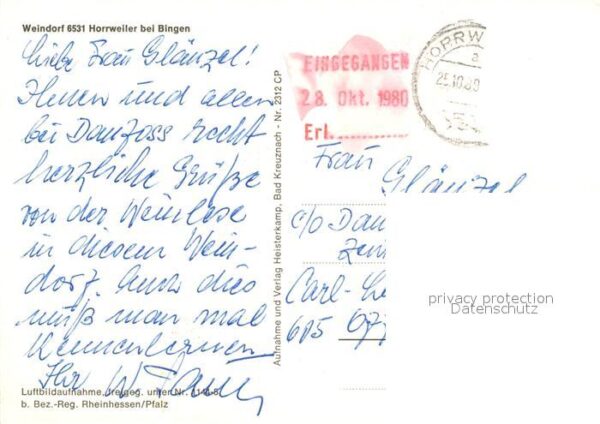 Weindorf 6531 Horrweiler bei Bingen
Liebe Frau Glänzel!
Ihnen und allen
bei Danfoss recht
herzliche Grüße
von der Weinlese
in diesem Wein-
dorf. Auch dies
muß man mal
kennenlernen
Ihr W.
Luftbildaufnahme, freigeg. unter Nr.
b. Bez.-Reg. Rheinhessen/Pfalz
Aufnahme und Verlag Heisterkamp, Bad Kreuznach - Nr. 2312 CP
EINGEGANGEN
28. Okt. 1980
Erl.
HORRW
a
25.10.80
Frau
Glänzel
c/o Dan
Carl-Le
605
privacy protection
Datenschutz